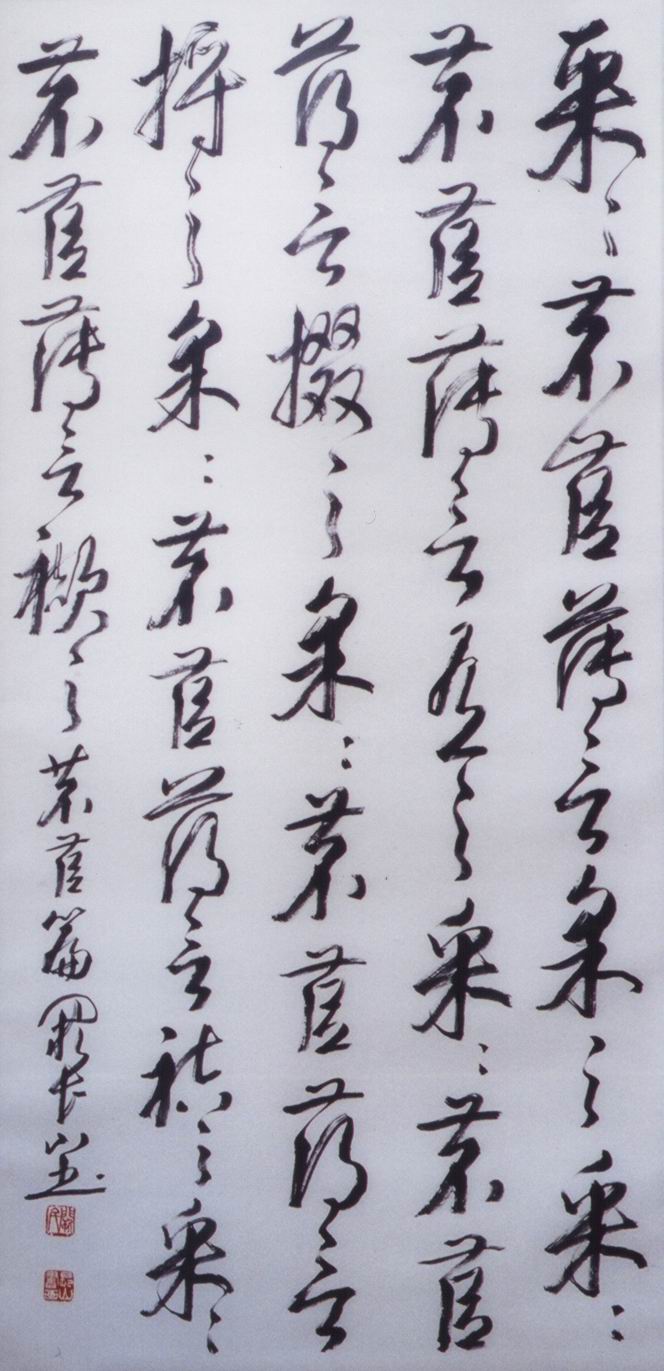 采〻芣苢薄言采之采〻
芣苢薄言有之采〻芣苢
薄言掇之采〻芣苢薄言
捋之采〻芣苢薄言袺之采〻
芣苢薄言襭之芣苢篇